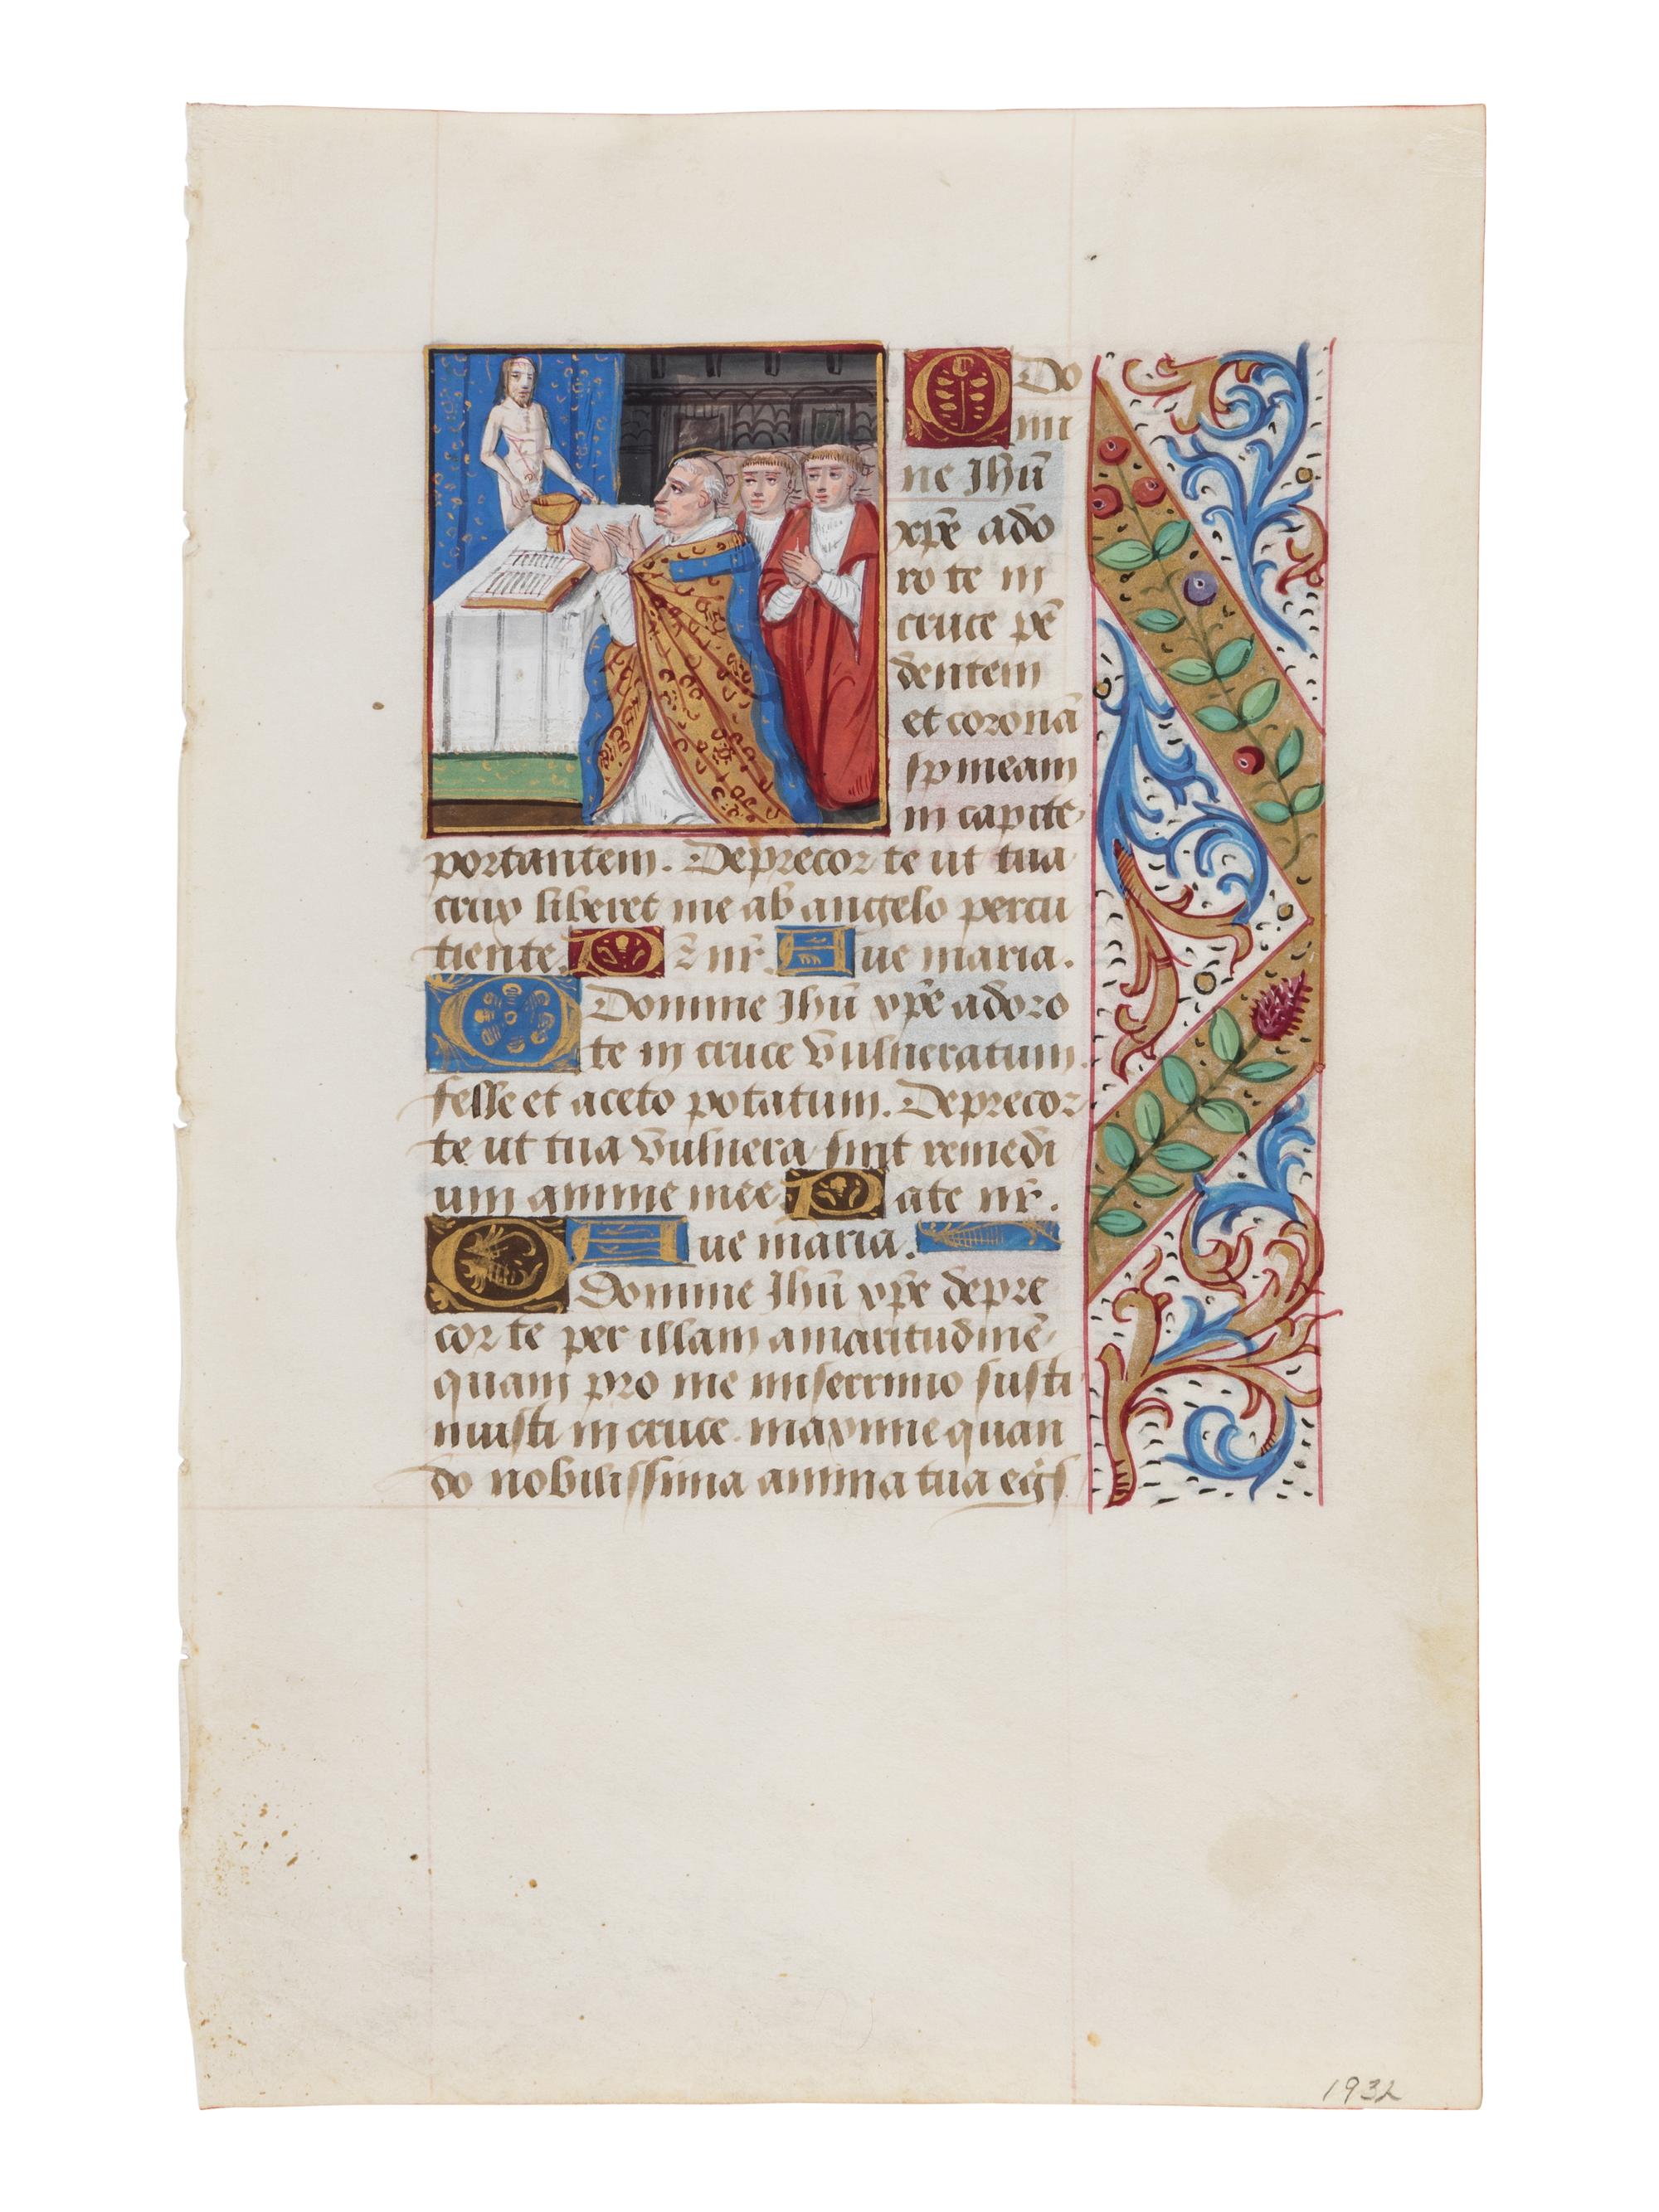 O Do
mi
ne Jhū
xp̄e ado
ro te in
cruce pē
dentem
et coronā
spineam
in capite
portantem. Deprecor te ut tua
crux liberet me ab angelo percu
tiente. P r̄ nr̄. Aue maria.
O Domine Jhū xp̄e adoro
te in cruce vulneratum
felle et aceto potatum. Deprecor
te ut tua vulnera sint remedi
um anime mee. Pate nr̄.
Aue maria.
O Domine Jhū xp̄e depre
cor te per illam amaritudinē
quam pro me miserrimo susti
nuisti in cruce. maxime quan
do nobilissima anima tua egr̄s
1932